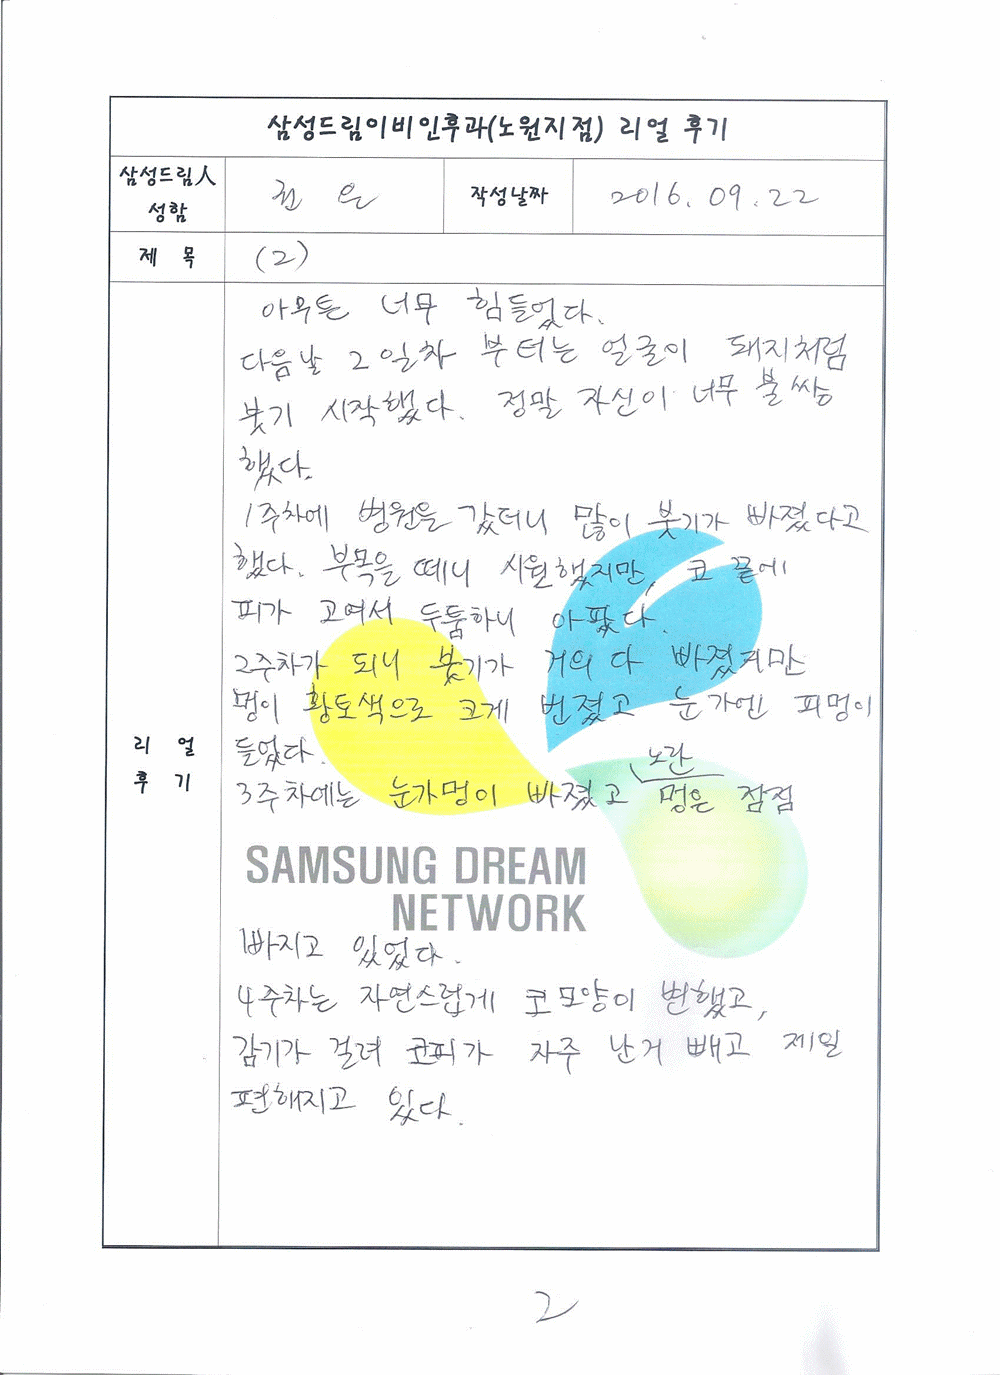 삼성드림이비인후과(노원지점) 리얼 후기
삼성드림人
성함
작성날짜
2016. 09. 22
제 목
(2)
리 얼
후 기
아무튼 너무 힘들었다.
다음날 2일차 부터는 얼굴이 돼지처럼
붓기 시작했다. 정말 자신이 너무 불쌍
했다.
1주차에 병원을 갔더니 많이 붓기가 빠졌다고
했다. 부목을 떼니 시원했지만, 코 끝에
피가 고여서 두툼하니 아팠다.
2주차가 되니 붓기가 거의 다 빠졌지만
멍이 황토색으로 크게 번졌고 눈가엔 피멍이
들었다.
노란
3주차에는 눈가멍이 빠졌고 멍은 점점
SAMSUNG DREAM
NETWORK
빠지고 있었다.
4주차는 자연스럽게 코모양이 변했고,
감기가 걸려 코피가 자주 난거 빼고 제일
편해지고 있다.
2